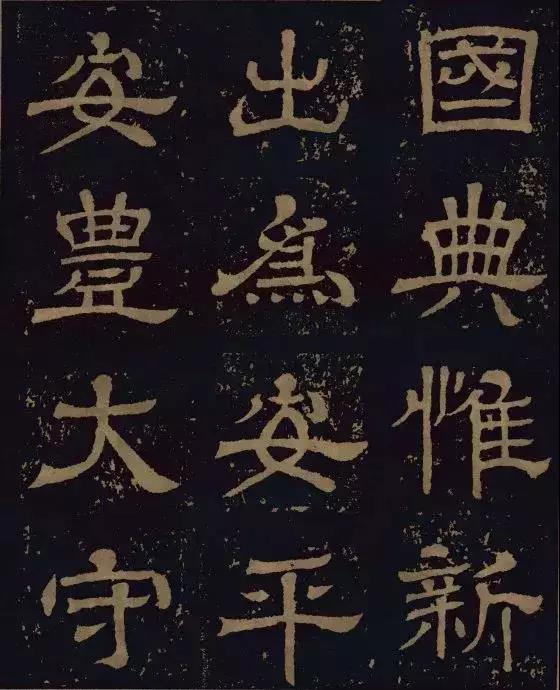 國典惟新
出爲安平
安豊大守